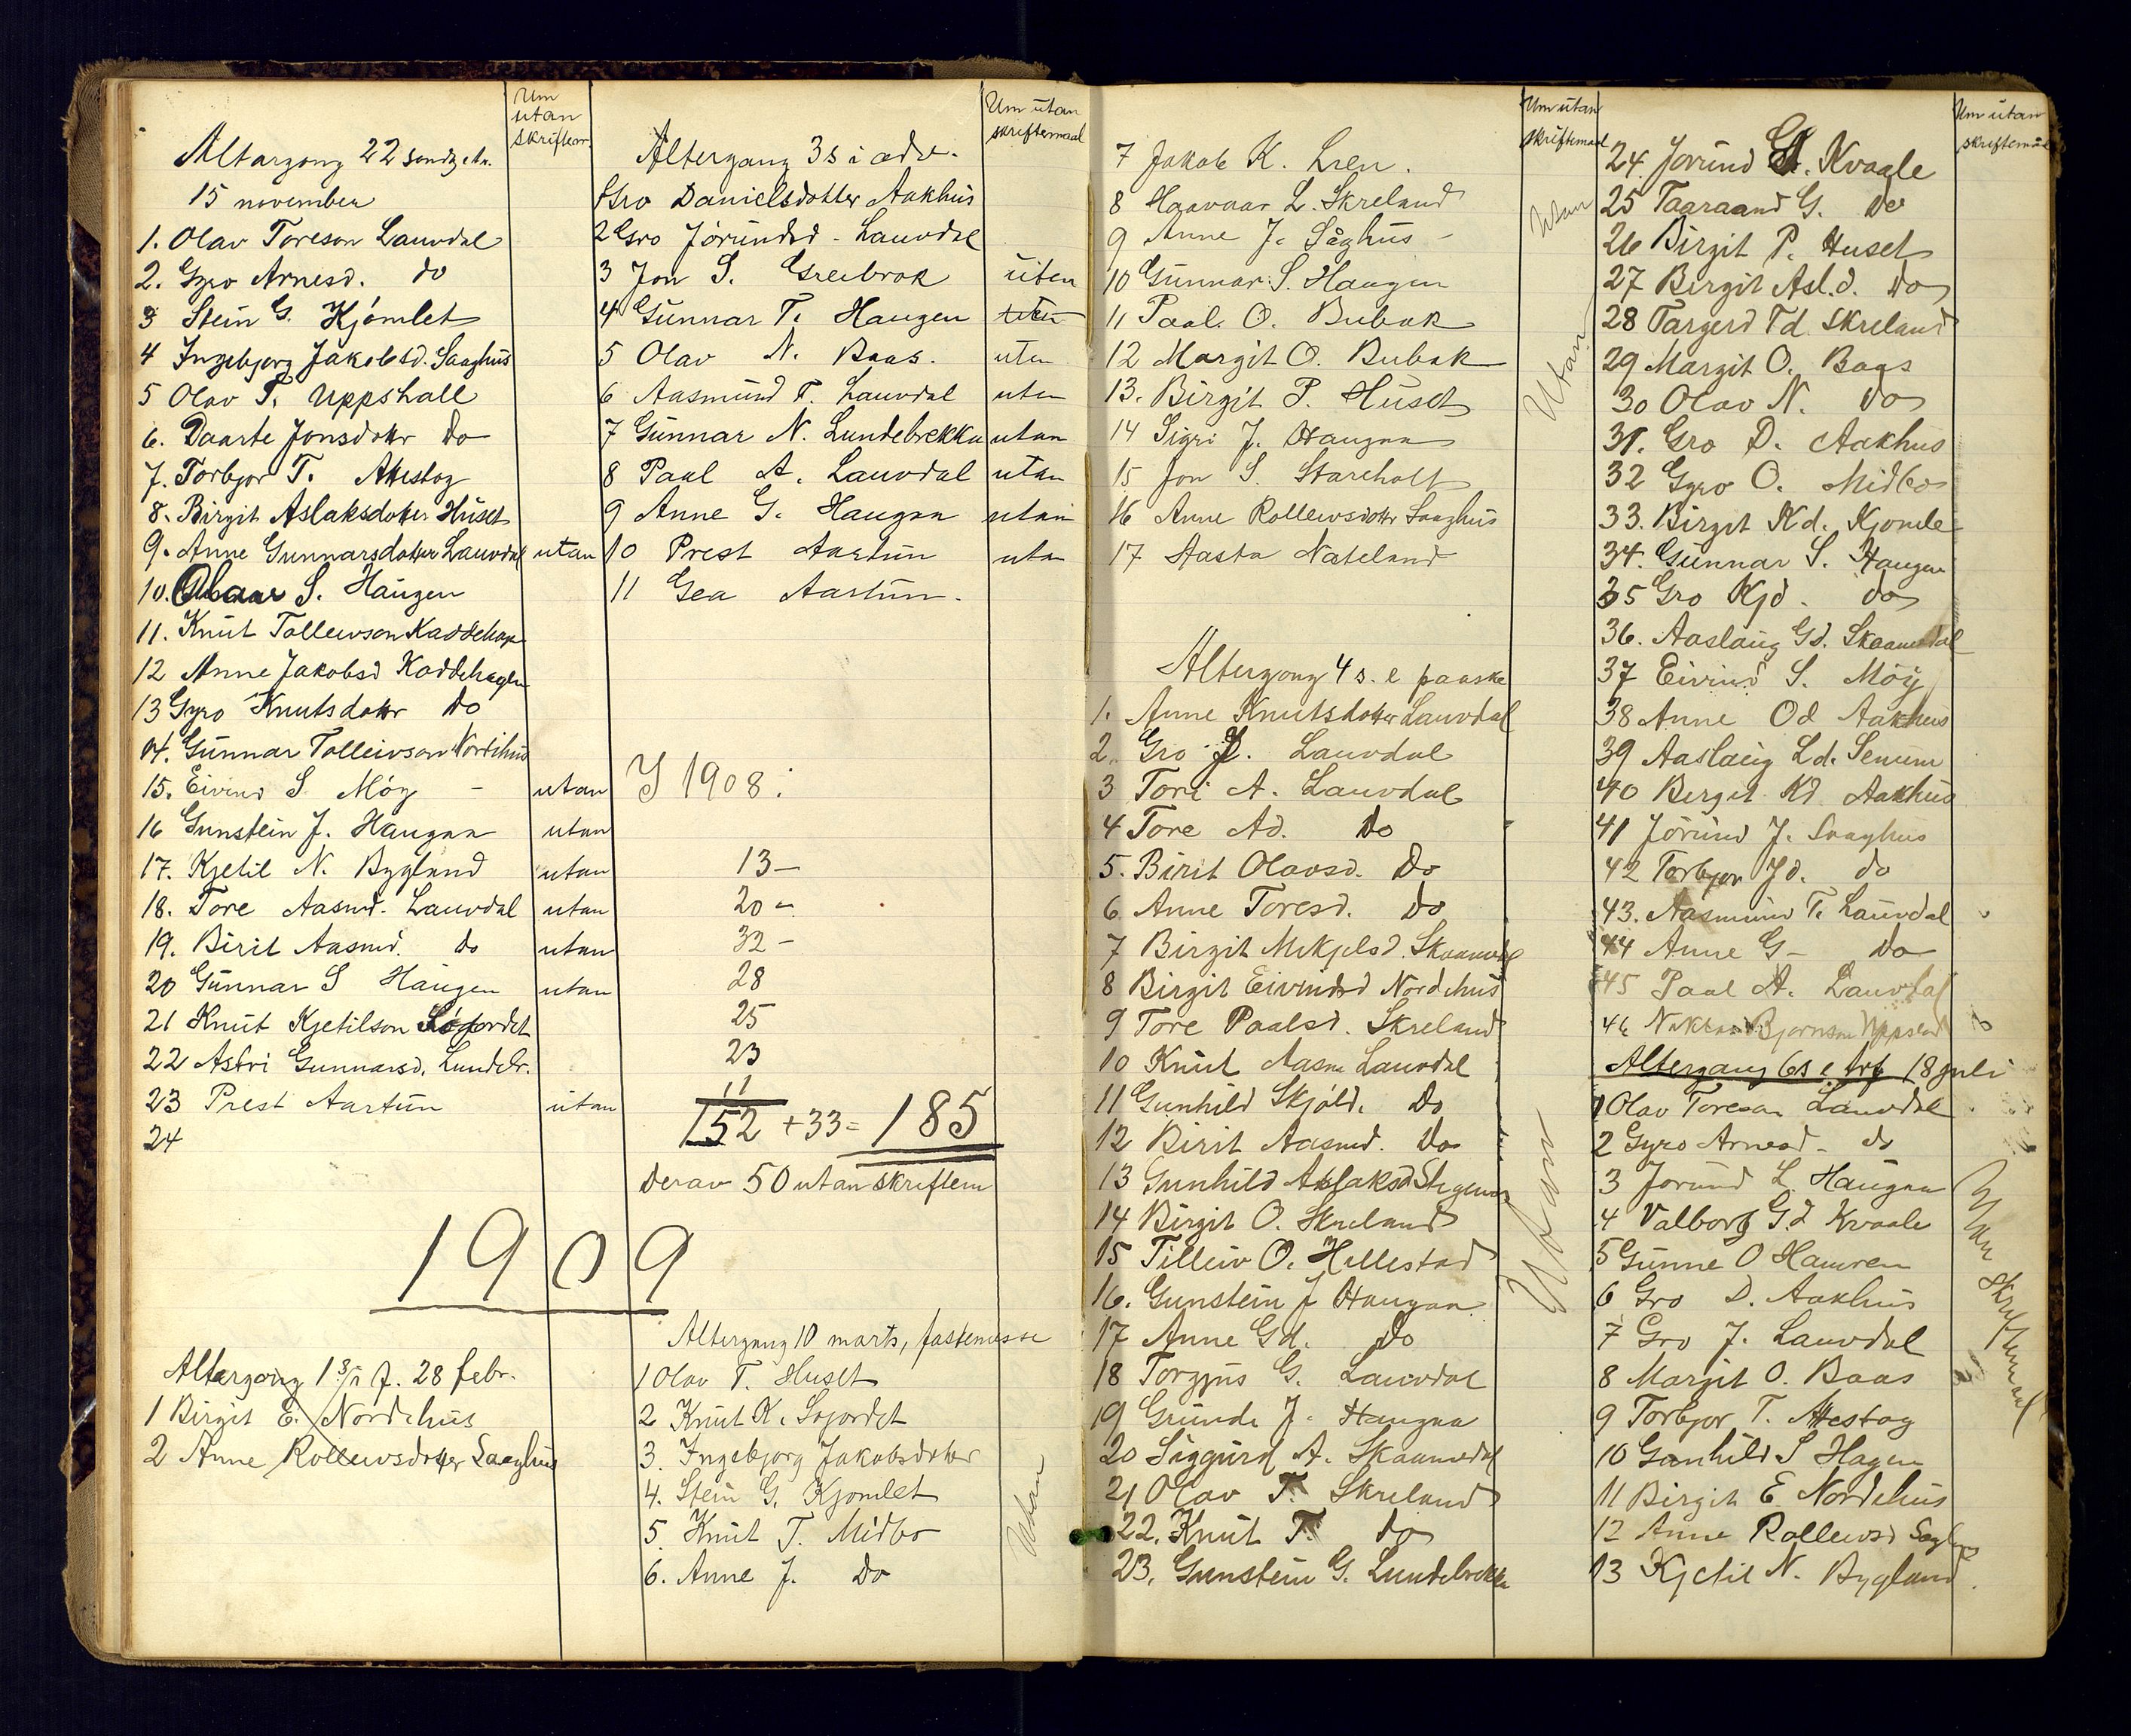 Um
utan
skriftem.
Altargong 22 sondg. e tr.
15 november
1. Olav Toreson Lauvdal
2. Gyro Arnesd. do
3 Stein G. Kjómlet
4 Ingebjorg Jakobsd. Saaghus
5 Olav T. Uppstall
6. Daarte Jonsdottr do
7. Torbjor T. Attestog
8. Birgit Aslaksdotter Húset
9. Anne Gunnarsdotter Lauvdal utan
10. S. Haugen
11. Knut Tolleivson Kaddehagen
12 Anne Jakobsd Kaddehagen
13 Gyro Knutsdottr do
14. Gunnar Tolleivson Nordihus
15. Eivind S Móy – utan
16 Gunstein J. Haugaa utan
17. Kjetil N. Bygland utan
18. Tore Aasmd. Lauvdal utan
19. Birit Aasmd. do utan
20 Gunnar S Haugen utan
21 Knut Kjetilson Lógjordet
22 Astri Gunnarsd. Lundebr.
23 Prest Aartun utan
24
1909
Altergong 1 s. i f. 28 febr.
1 Birgit E. Nordehus
2 Anne Rolleivsdotter Saaghus
Um utan
skriftemaal
Altergang 3 s i adv.
1 Gro Danielsdotter Aakhus
2 Gro Jórundsd - Lauvdal
3 Jon S. Greibrok uten
4 Gunnar T. Haugen uten
5 Olav N. Baas. uten
6 Aasmund T. Lauvdal uten
7 Gunnar N. Lundebrekka utan
8 Paal A. Lauvdal utan
9 Anne G. Haugaa utan
10 Prest Aartun utan
11 Gea Aartun.
I 1908:
13 –
20 –
32 –
28
25
23
11
152 + 33 = 185
derav 50 utan skriftem
Altergang 10 marts, fastemesse
1 Olav T. Huset
2 Knut K. Logjordet
3. Ingebjorg Jakobsdotter
4. Stein G. Kjomlet
5. Knut T. Midbo
6. Anne J. do
Utan
Um utan
skriftemaal
7 Jakob K. Lien.
8 Haavaar L. Skreland
9 Anne J. Såghus –
10 Gunnar S. Haugen
11 Paal O. Bubak
12 Margit O. Bubak
13. Birgit P. Húset
14 Sigri J. Haugaa
15 Jon S. Stareholt
16 Anne Rolleivsdottr Saaghus
17 Aasta Nateland
Utan
Utan
Altergong 4 s. e paaske
1. Anne Knutsdotter Lauvdal
2. Gro J. Lauvdal
3 Tori A. Lauvdal
4 Tore Ad. do
5. Birit Olavsd. do
6. Anne Toresd. do
7 Birgit Mikjelsd. Skaamedal
8 Birgit Eivindsd Nordehus
9 Tore Paalsd. Skreland
10 Knut Aasm Lauvdal
11 Gunhild Skjóld. do
12 Birit Aasmd. do
13 Gunhild Aslaksd
14 Birgit O. Skreland
15 Tilleiv O. Hillestad
16. Gunstein J Haugaa
17 Anne Gd. do
18 Torgjus G. Lauvdal
19 Grunde J. Haugaa
20 Siggurd A. Skaamedal
21 Olav T. Skreland
22. Knut T. do
23. Gunstein G. Lundebrekka
Utan
Um utan
skriftemål
24. Jorund G. Kvaale
25 Taaraand G. do
26 Birgit P. Huset
27 Birgit Asl.d. do
28 Targerd Td. Skreland
29 Margit O. Baas
30 Olav N. do
31. Gro D. Aakhus
32 Gyro O. Midbo
33. Birgit Kd. Kjomle
34. Gunnar S. Haugen
35 Gro Kjd. do
36. Aaslaug Gd. Skaamedal
37 Eivind S. Móy
38 Anne Od Aakhus
39 Aaslaug Ld. Senum
40 Bergit Kd Aakhus
41 Jórund J. Saaghus
42 Torbjor Jd. do
43. Aasmund T. Lauvdal
44 Anne G – do
45 Paal A. Lauvdal
46 Bjornson Uppstad
Altergang 6 s e trf 18 juli
1 Olav Toreson Lauvdal
2 Gyro Arnesd – do
3 Jorund L. Haugaa
4 Valborg G.d Kvaale
5 Gunne O Hamren
6 Gro D. Aakhus
7 Gro J. Lauvdal
8 Margit O. Baas
9 Torbjor T. Attestog
10 Gunhild S Hagen
11 Birgit E. Nordehus
12 Anne Rolleivsd Saghus
13 Kjetil N. Bygland
Utan skriftemaal